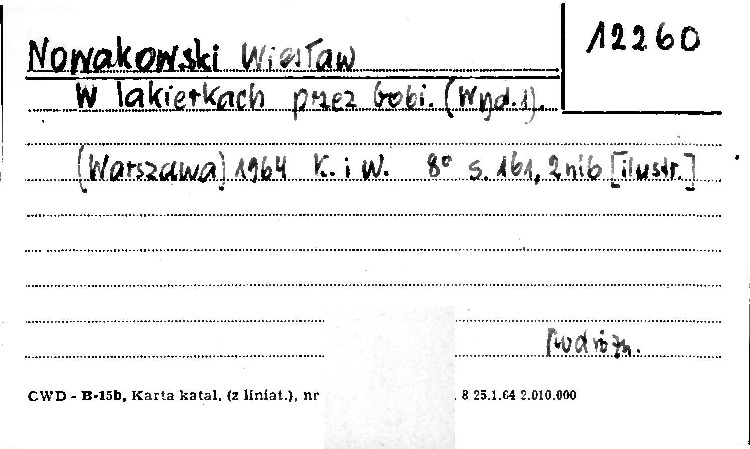 12260
Nowakowski Wiesław
W lakierkach przez Gobi. (Wyd. 1).
[Warszawa] 1964 K. i W. 8° s. 161, 2 nib [ilustr.]
Podróżn.
CWD - B-15b, Karta katal. (z liniat.), nr . 8 25.1.64 2.010.000